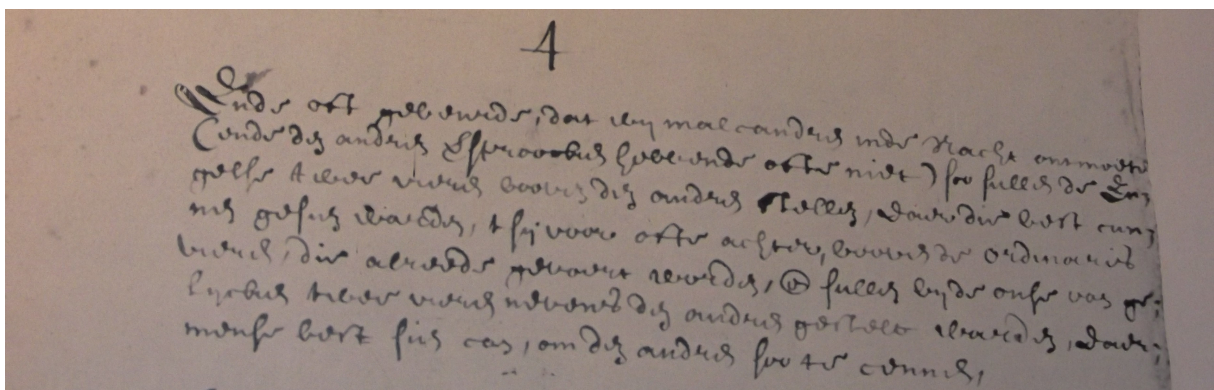 4
Ende oft gebeurde, dat wy malcandren inde Nacht ontmoete
(ende den andren gesproocken hebbende ofte niet) soo sullen de En
gelse twee vieren boven den andren stellen, daer die best cun
nen gesien warden, t sy voor ofte achter, boven de ordinaris
vieren, die alreede gevoert worden, sullen byde onse van ge
lycken twee vieren nevens den andren gestelt warden, daer
mense best sien can, om den andren soo te cennen,